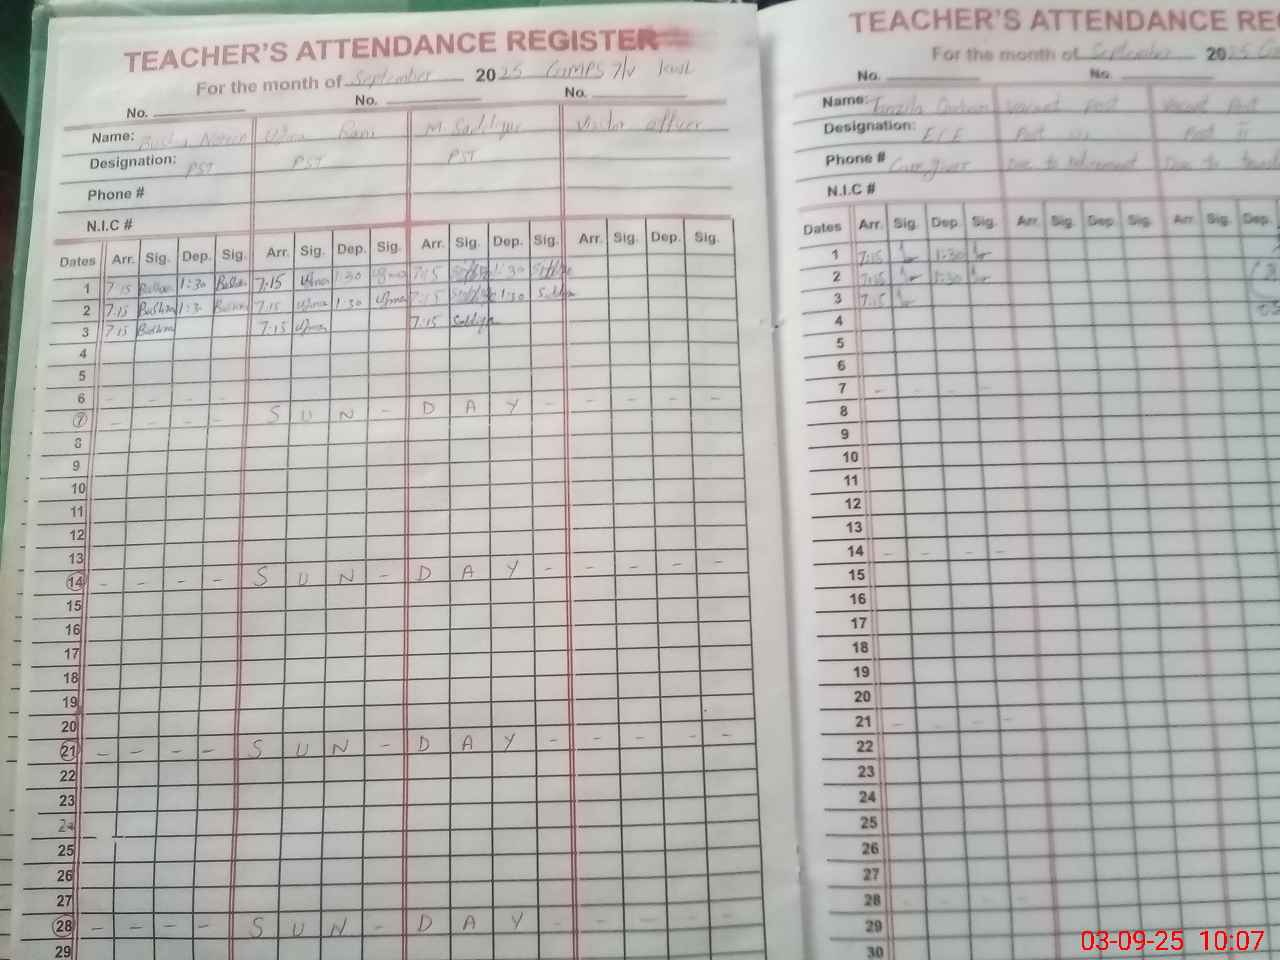 TEACHER'S ATTENDANCE REGISTER
For the month of September 2025 GGMPS 7/v kwl
No. No. No.
Name: Bushra Uzma Rani M. Saddique Visitor officer
Designation: PST PST PST
Phone #
N.I.C #
Dates Arr. Sig. Dep. Sig. Arr. Sig. Dep. Sig. Arr. Sig. Dep. Sig. Arr. Sig. Dep. Sig.
1 7:15 Bushra 1:30 Bushra 7:15 Uzma 1:30 Uzma 7:15 1:30
2 7:15 Bushra 1:30 Bushra 7:15 Uzma 1:30 Uzma 7:15 1:30
3 7:15 Bushra 7:15 Uzma 7:15
4
5
6 - - - - - - - -
7 - - - - S U N - D A Y -
8
9
10
11
12
13
14 - - - - S U N - D A Y - - - - -
15
16
17
18
19
20
21 - - - - S U N - D A Y - - - - -
22
23
24
25
26
27
28 - - - - S U N - D A Y - - - - -
29
TEACHER'S ATTENDANCE RE
For the month of September 2025
No. No.
Name: Tanzila Vacant post Vacant Post
Designation: ECE Post Post II
Phone # Care giver Due to retirement Due to
N.I.C #
Dates Arr. Sig. Dep. Sig. Arr. Sig. Dep. Sig. Arr. Sig. Dep.
1 7:15 1:30
2 7:15 1:30
3 7:15
4
5
6
7 - - - -
8
9
10
11
12
13
14 - - - -
15
16
17
18
19
20
21 - - - -
22
23
24
25
26
27
28 - - - -
29
30
03-09-25 10:07